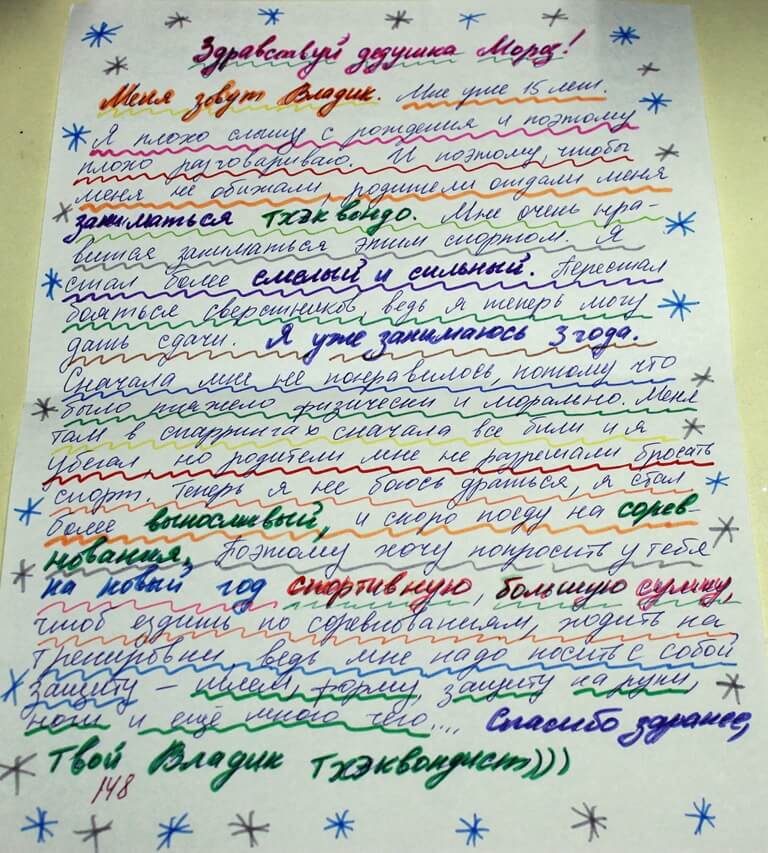 Здравствуй дедушка Мороз!
Меня зовут Владик. Мне уже 15 лет.
Я плохо слышу с рождения и поэтому
плохо разговариваю. И поэтому, чтобы
меня не обижали, родители отдали меня
заниматься тхэквондо. Мне очень нра-
вится заниматься этим спортом. Я
стал более смелый и сильный. Перестал
бояться сверстников, ведь я теперь могу
дать сдачи. Я уже занимаюсь 3 года.
Сначала мне не понравилось, потому что
было тяжело физически и морально. Меня
там в спаррингах сначала все били и я
убегал, но родители мне не разрешали бросать
спорт. Теперь я не боюсь драться, я стал
более выносливый, и скоро поеду на сорев-
нования. Поэтому хочу попросить у тебя
на новый год спортивную, большую сумку,
чтоб ездить по соревнованиям, ходить на
тренировки, ведь мне надо носить с собой
защиту – шлем, форму, защиту на руки,
ноги и ещё много чего.... Спасибо заранее,
Твой Владик тхэквондист)))
148